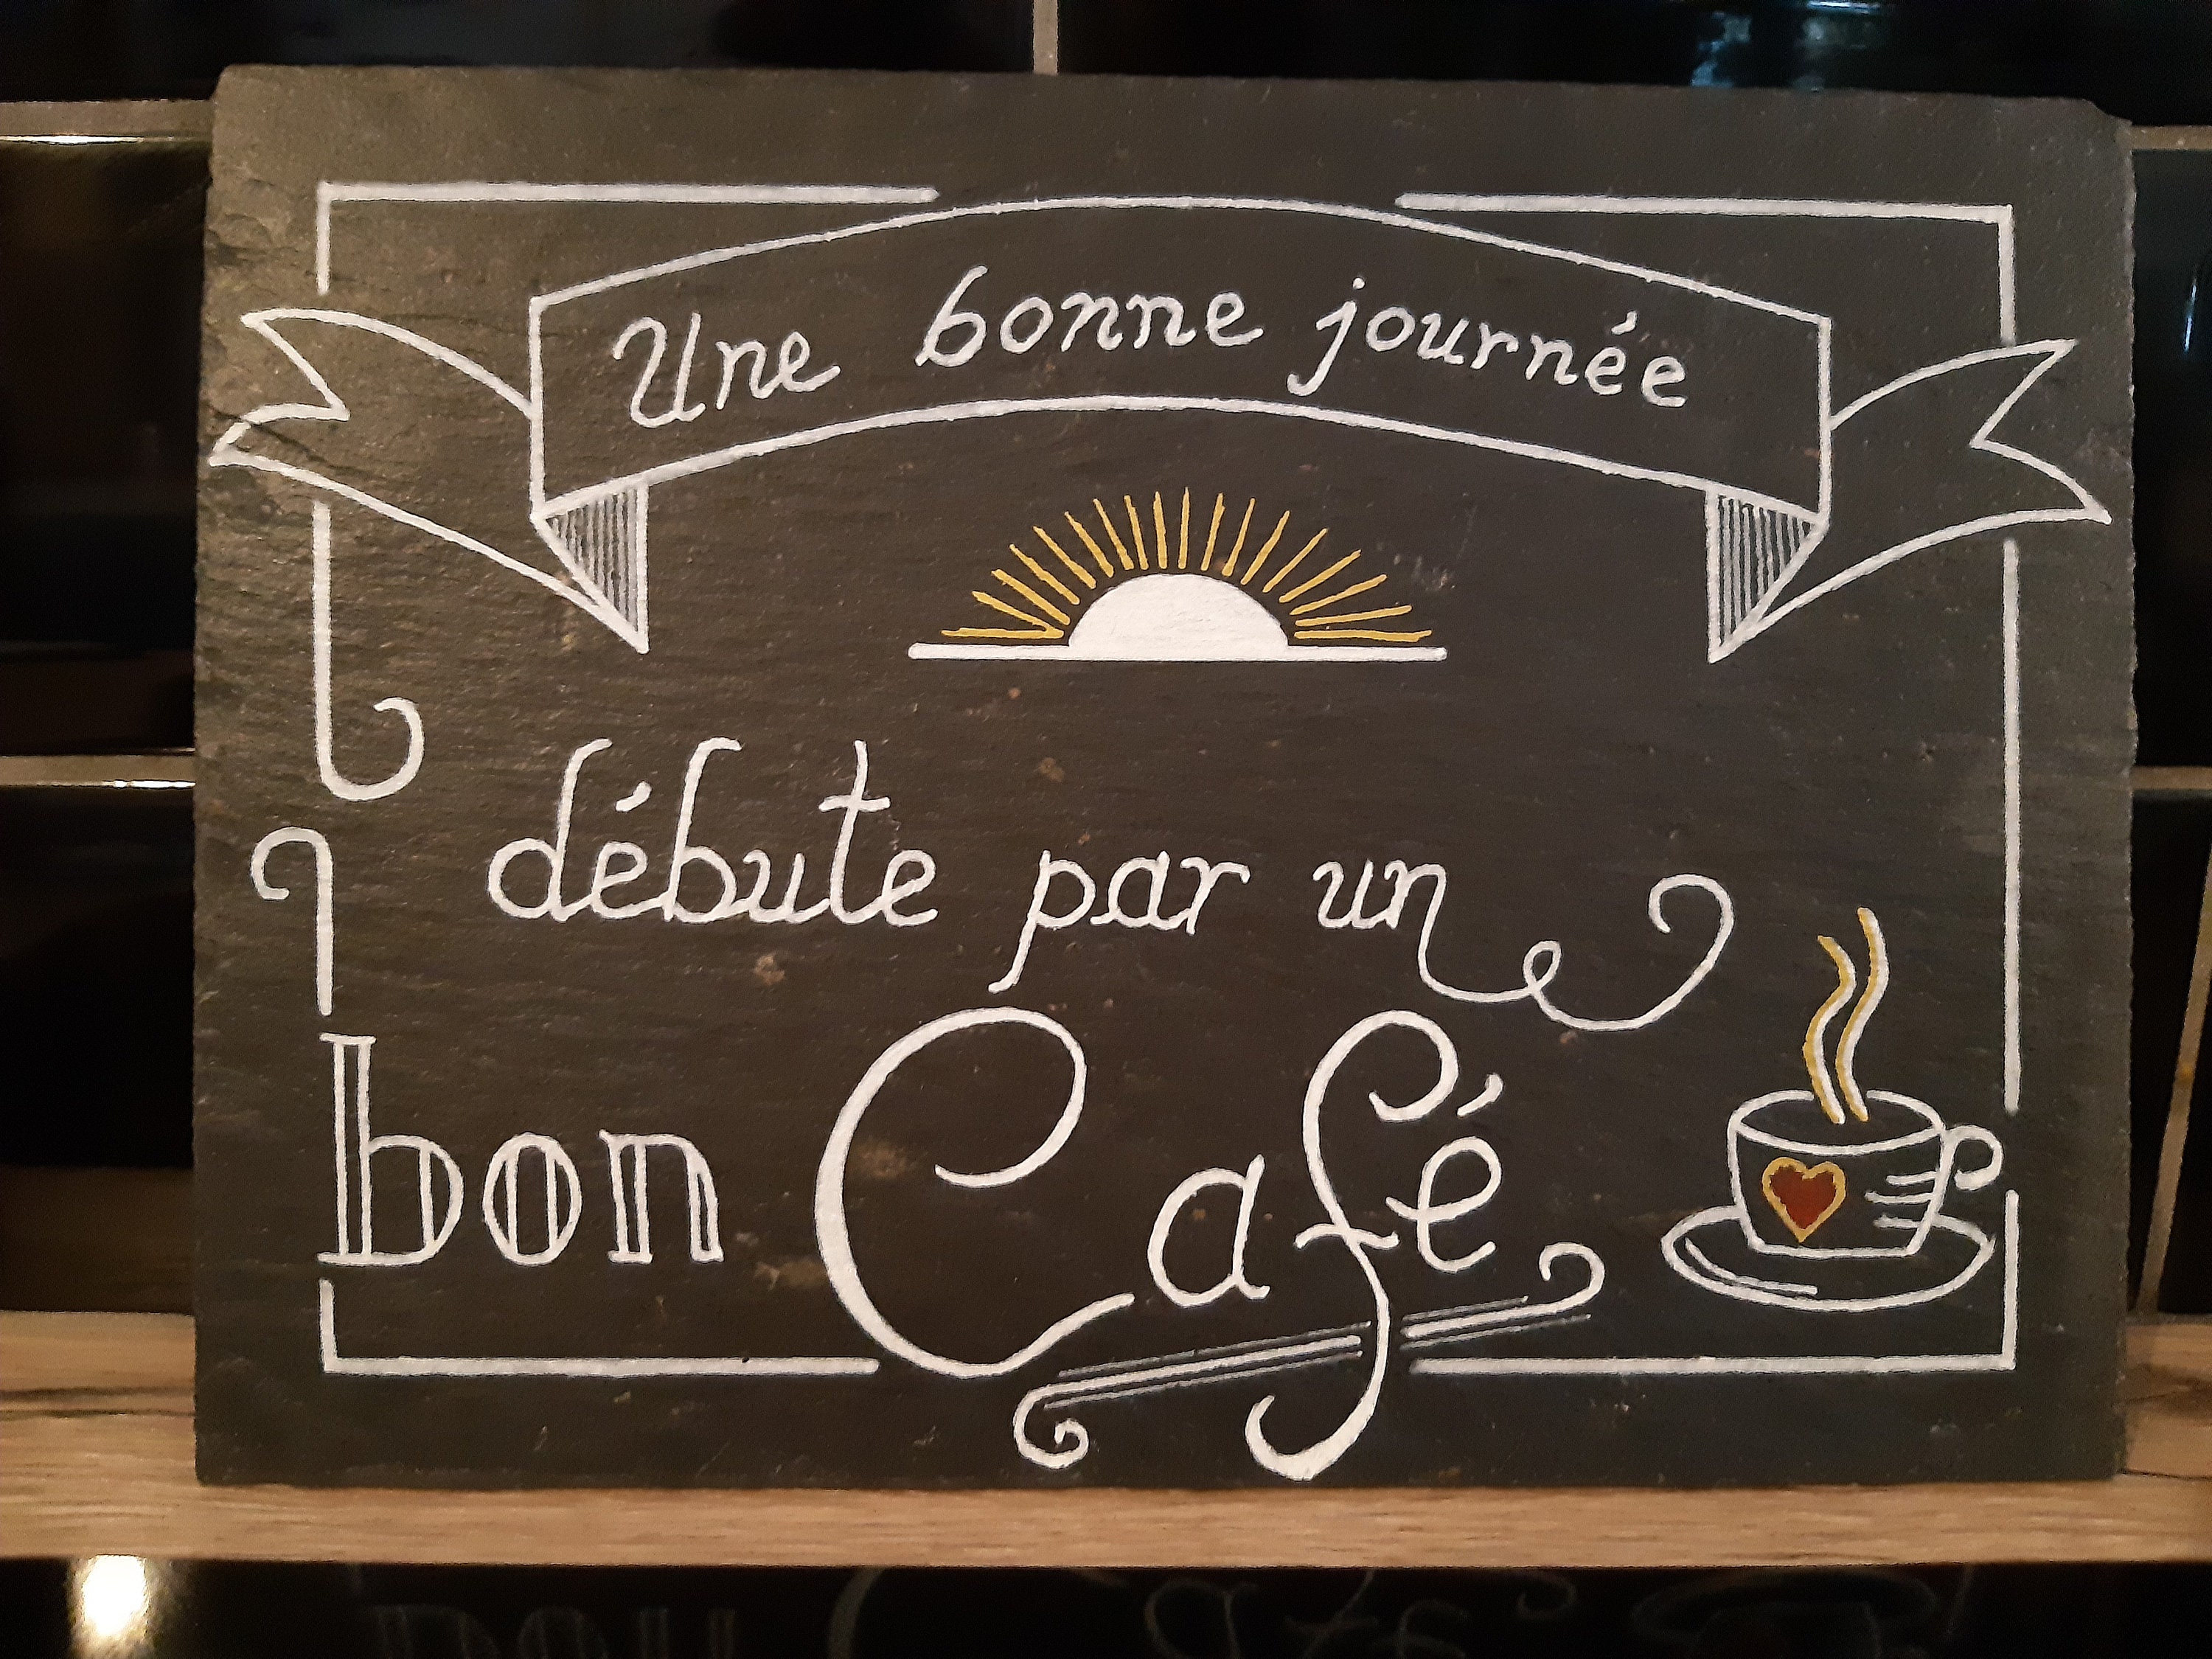 Une bonne journée
débute par un
bon Café